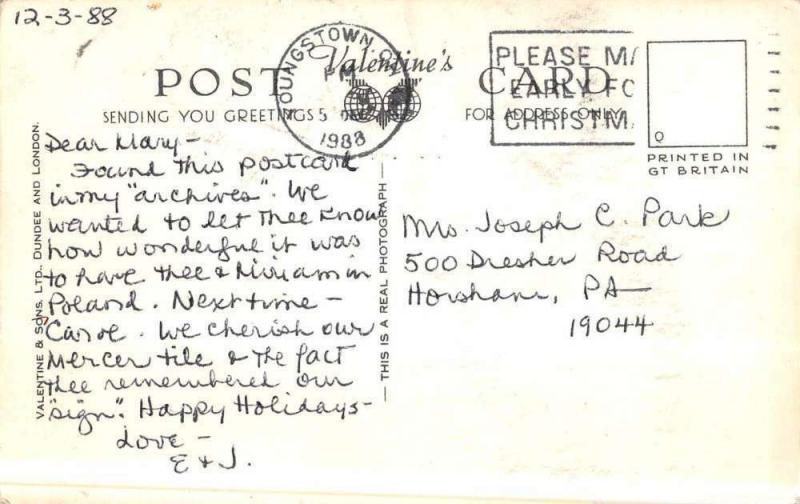 12-3-88
POST CARD
Valentine's
SENDING YOU GREETINGS
FOR ADDRESS ONLY
YOUNGSTOWN O
PM
5
1988
PLEASE MA
EARLY FO
CHRISTMA
PRINTED IN
GT BRITAIN
VALENTINE & SONS. LTD., DUNDEE AND LONDON.
— THIS IS A REAL PHOTOGRAPH —
Dear Mary-
Found this postcard
in my "archives". We
wanted to let thee know
how wonderful it was
to have thee & Miriam in
Poland. Next time -
Carol. We cherish our
Mercer tile & the fact
thee remembered our
"sign". Happy Holidays-
Love -
E & J.
Mrs. Joseph C. Park
500 Dresher Road
Horsham, PA
19044